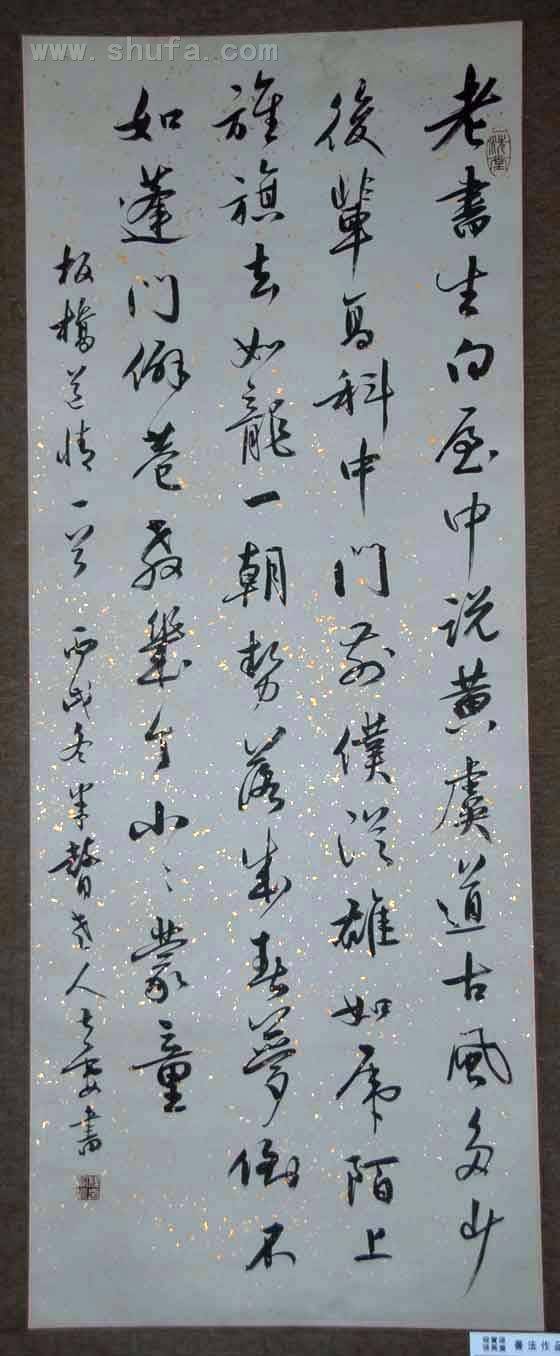 www.shufa.com
老書生白屋中说黄虞道古風多少
後輩高科中門前僕從雄如虎陌上
旌旗去如龍一朝勢落成春夢倒不
如蓬門僻巷教幾个小〻蒙童
板橋道情一首 丙戌冬半瞽老人書
書法作